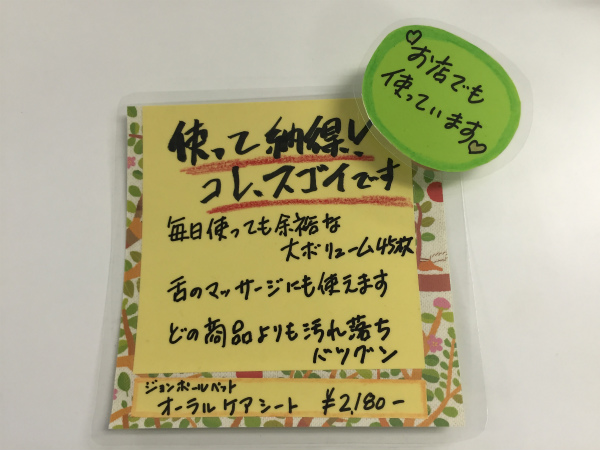 ♡お店でも
使っています♡
使って納得！
コレ、スゴイです
毎日使っても余裕な
大ボリューム45枚
舌のマッサージにも使えます
どの商品よりも汚れ落ち
バツグン
ジョンポールペット
オーラルケアシート ¥2,180-